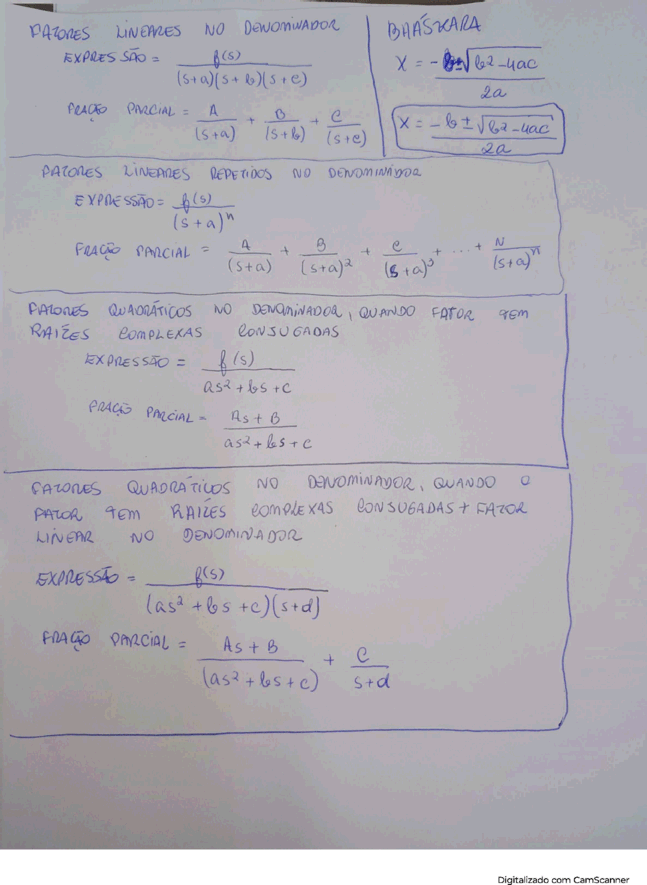 FATORES LINEARES NO DENOMINADOR
EXPRESSÃO = f(s) / (s+a)(s+b)(s+c)
FRAÇÃO PARCIAL = A/(s+a) + B/(s+b) + C/(s+c)
BHÁSKARA
X = -b±√b²-4ac / 2a
X = -b ± √b²-4ac / 2a
FATORES LINEARES REPETIDOS NO DENOMINADOR
EXPRESSÃO = f(s) / (s+a)ⁿ
FRAÇÃO PARCIAL = A/(s+a) + B/(s+a)² + C/(s+a)³ + ... + N/(s+a)ⁿ
FATORES QUADRÁTICOS NO DENOMINADOR, QUANDO FATOR TEM
RAIZES COMPLEXAS CONJUGADAS
EXPRESSÃO = f(s) / as²+bs+c
FRAÇÃO PARCIAL = As+B / as²+bs+c
FATORES QUADRÁTICOS NO DENOMINADOR, QUANDO O
FATOR TEM RAIZES COMPLEXAS CONJUGADAS + FATOR
LINEAR NO DENOMINADOR
EXPRESSÃO = f(s) / (as²+bs+c)(s+d)
FRAÇÃO PARCIAL = As+B / (as²+bs+c) + C / s+d
Digitalizado com CamScanner